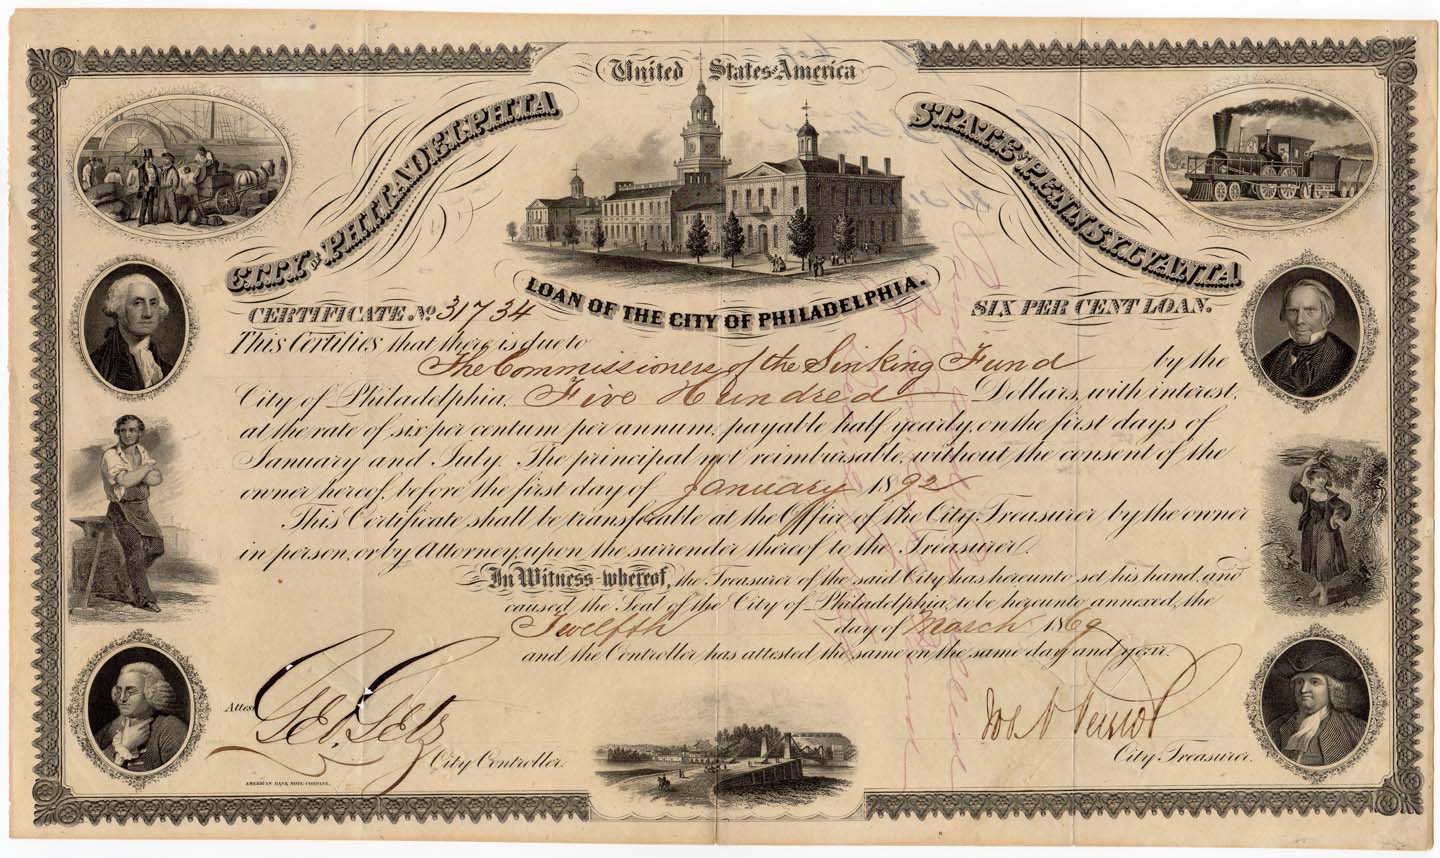 United States of America
CITY OF PHILADELPHIA
STATE OF PENNSYLVANIA
LOAN OF THE CITY OF PHILADELPHIA.
CERTIFICATE No. 31734
SIX PER CENT LOAN.
This Certifies that there is due to
The Commissioners of the Sinking Fund by the
City of Philadelphia, Five Hundred Dollars, with interest,
at the rate of six per centum per annum, payable half yearly, on the first days of
January and July. The principal not reimbursable, without the consent of the
owner hereof, before the first day of January 1892
This Certificate shall be transferable at the Office of the City Treasurer by the owner
in person, or by Attorney, upon the surrender thereof to the Treasurer.
In Witness whereof, the Treasurer of the said City has hereunto set his hand, and
caused the Seal of the City of Philadelphia, to be hereunto annexed, the
Twelfth day of March 1869
and the Controller has attested the same on the same day and year.
Attest
City Controller.
City Treasurer.
AMERICAN BANK NOTE COMPANY.